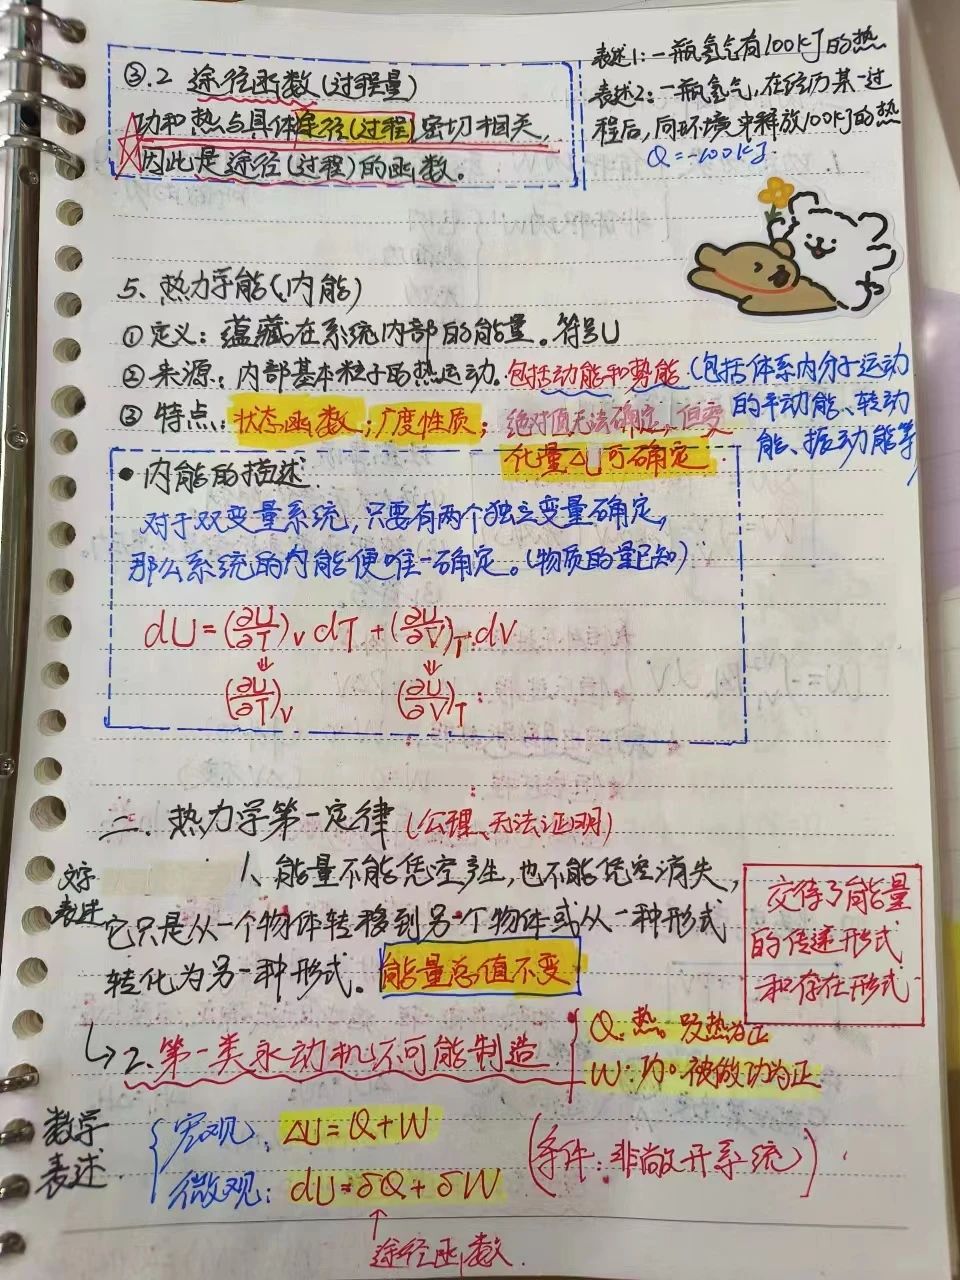 ③.2 途径函数(过程量)
功和热与具体途径(过程)密切相关,
因此是途径(过程)的函数。
表述1:一瓶氢气有100kJ的热
表述2:一瓶氢气,在经历某一过
程后,向环境中释放100kJ的热
Q=-100kJ.
5、热力学能(内能)
①定义:蕴藏在系统内部的能量。符号U
②来源:内部基本粒子的热运动。包括动能和势能(包括体系内分子运动
的平动能、转动
能、振动能等
③特点:状态函数;广度性质;绝对值无法确定,但变
化量△U可确定
•内能的描述
对于双变量系统,只要有两个独立变量确定,
那么系统的内能便唯一确定。(物质的量已知)
dU=(∂U/∂T)v dT+(∂U/∂V)T·dV
⇓ ⇓
(∂U/∂T)V (∂U/∂V)T
二、热力学第一定律(公理、无法证明)
文字
表述
1、能量不能凭空产生,也不能凭空消失,
它只是从一个物体转移到另一个物体或从一种形式
转化为另一种形式。能量总值不变
交待了能量
的传递形式
和存在形式
↳2.第一类永动机不可能制造
Q:热。吸热为正
W:功。被做功为正
数学
表述
宏观:△U=Q+W
微观:dU=δQ+δW
(条件:非敞开系统)
↑
途径函数.